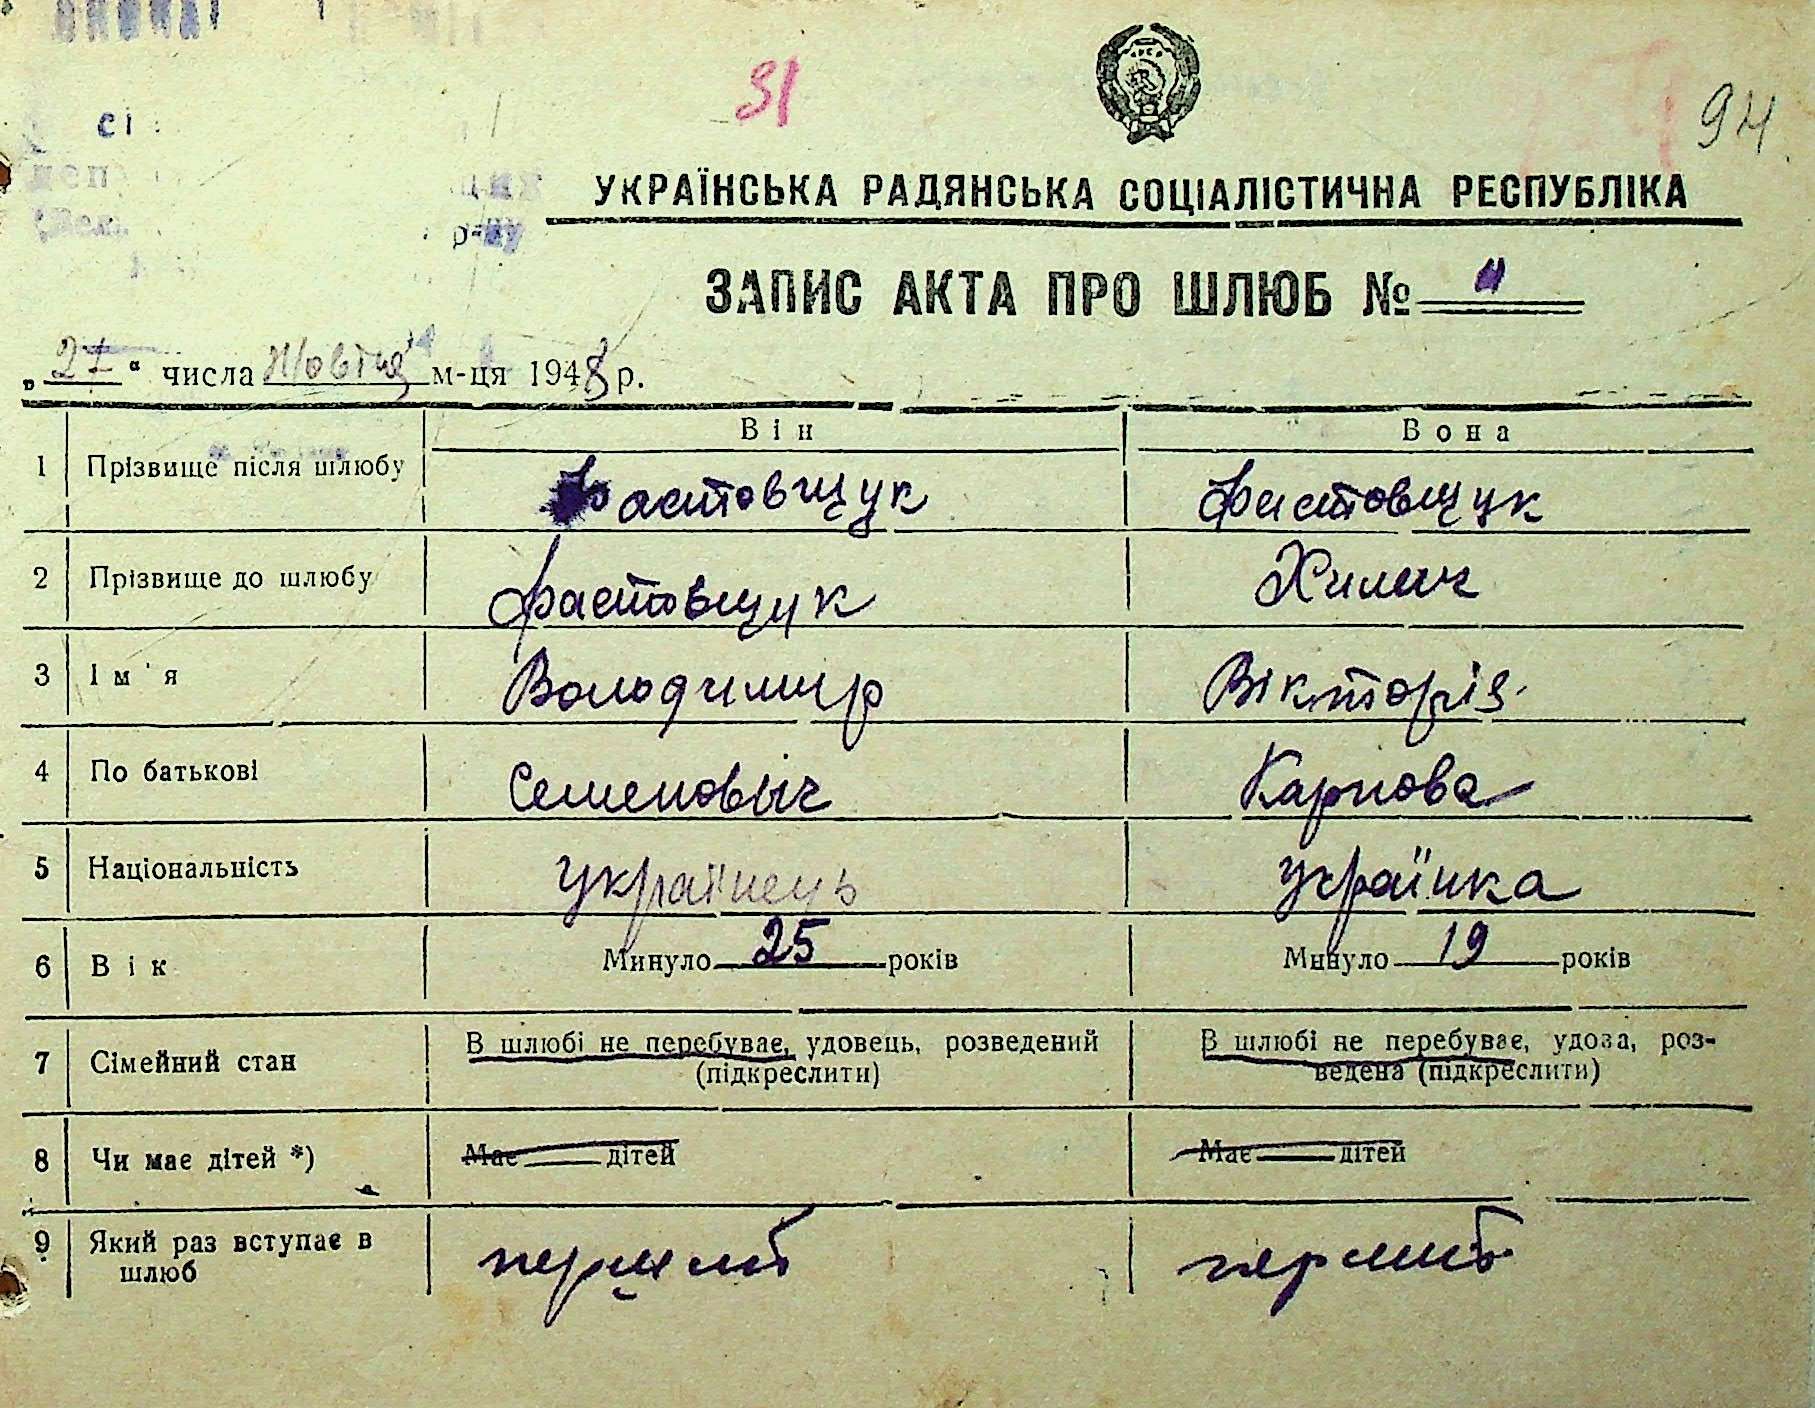 31
94
УКРАЇНСЬКА РАДЯНСЬКА СОЦІАЛІСТИЧНА РЕСПУБЛІКА
ЗАПИС АКТА ПРО ШЛЮБ №
„27“ числа Жовтня м-ця 1948 р.
Він Вона
1 Прізвище після шлюбу Фастовщук Фастовщук
2 Прізвище до шлюбу Фастовщук
3 Ім'я Володимир Вікторія
4 По батькові Семенович Карпова
5 Національність українець українка
6 Вік Минуло 25 років Минуло 19 років
7 Сімейний стан В шлюбі не перебуває, удовець, розведений В шлюбі не перебуває, удова, роз-
(підкреслити) ведена (підкреслити)
8 Чи має дітей *) Має дітей Має дітей
9 Який раз вступає в
шлюб